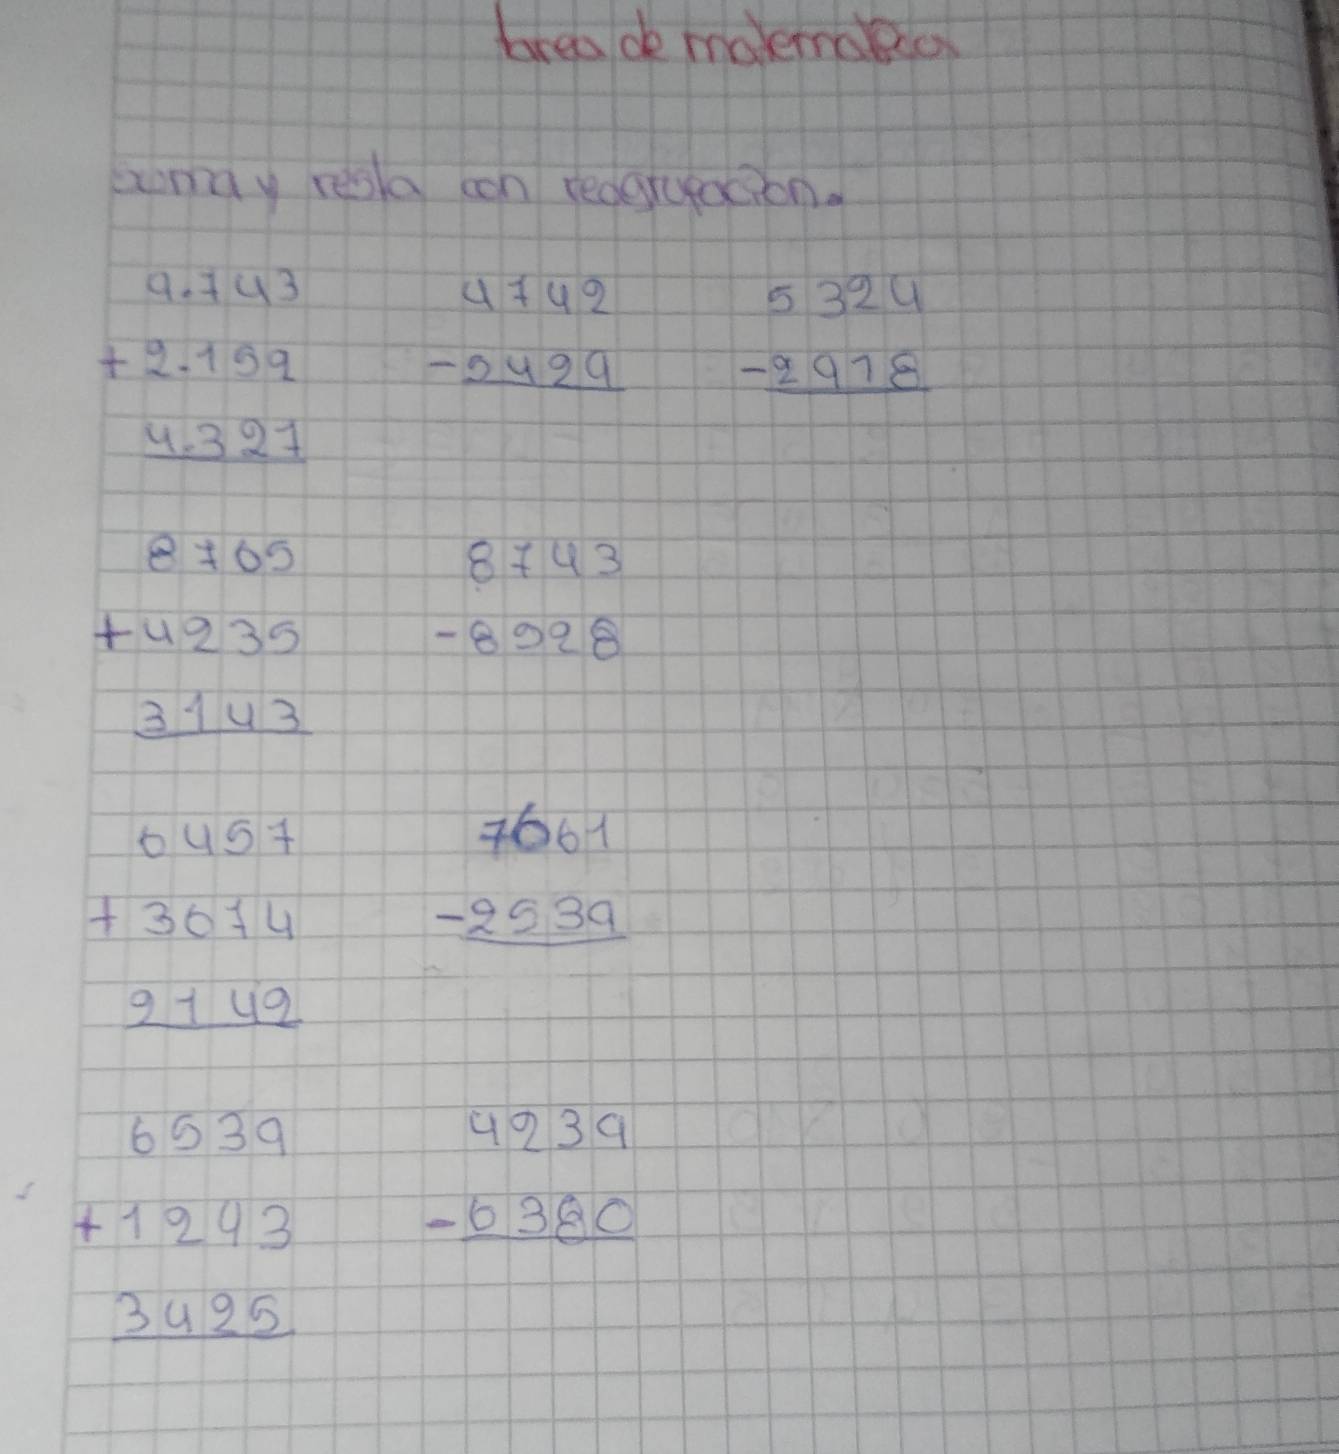 tarea de matematica
suma y resta con reagrupación.
9.743 4742 5324
+2.159 -2429 -2918
4.327
8765 8743
+4235 -8528
3143
6457 7661
+3674 -2539
2142
6539 4239
+1243 -6380
3425